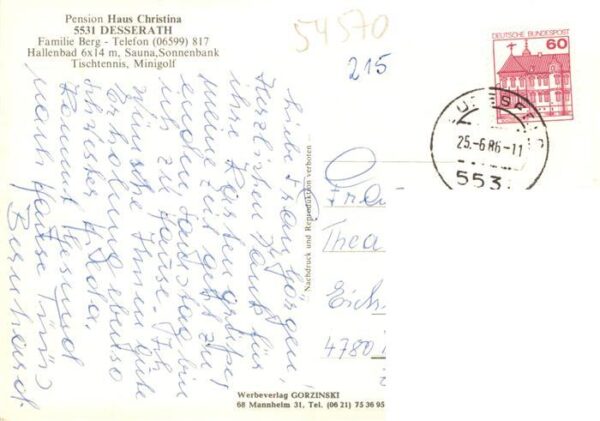 Pension Haus Christina
5531 DESSERATH
Familie Berg - Telefon (06599) 817
Hallenbad 6x14 m, Sauna, Sonnenbank
Tischtennis, Minigolf
54570
215
DEUTSCHE BUNDESPOST
60
25.-6.86-11
553
Liebe Frau
Herzlichen Dank für
ihre Kartengrüße!
Meine Zeit geht zu
enden, Samstag bin
ich zu Hause. Ich
wünsche Ihnen gute
Erholung ebenso
Schwester Hilda.
Kommt Gesund
nach Hause Tüüs
Bernhard.
Nachdruck und Reproduktion verboten
Frau
Thea
Eich
4780
Werbeverlag GORZINSKI
68 Mannheim 31, Tel. (06 21) 75 36 95